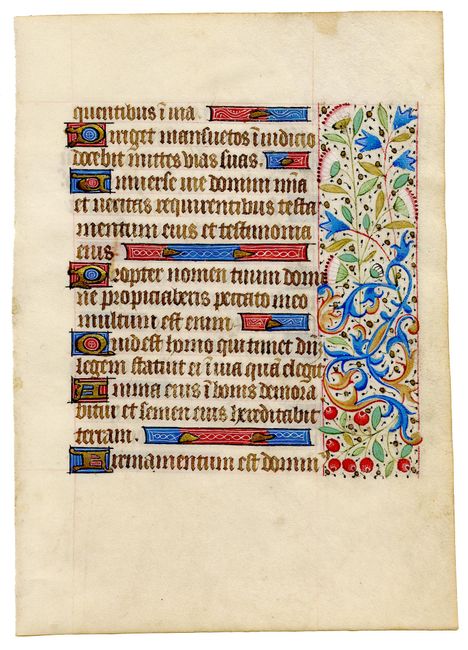 quentibus ī via.
Diriget mansuetos ī iudicio
docebit mittes vias suas.
Universe vie domini mīa
et veritas requirentibus testa
mentum eius et testimonia
eius
Propter nomen tuum domi
ne propiciaberis peccato meo
multum est enim
Quis est homo qui timet dn̄
legem statuit ei ī via quā elegit
Anima eius ī bonis demora
bitur et semen eius hereditabit
terram.
Firmamentum est domin̄